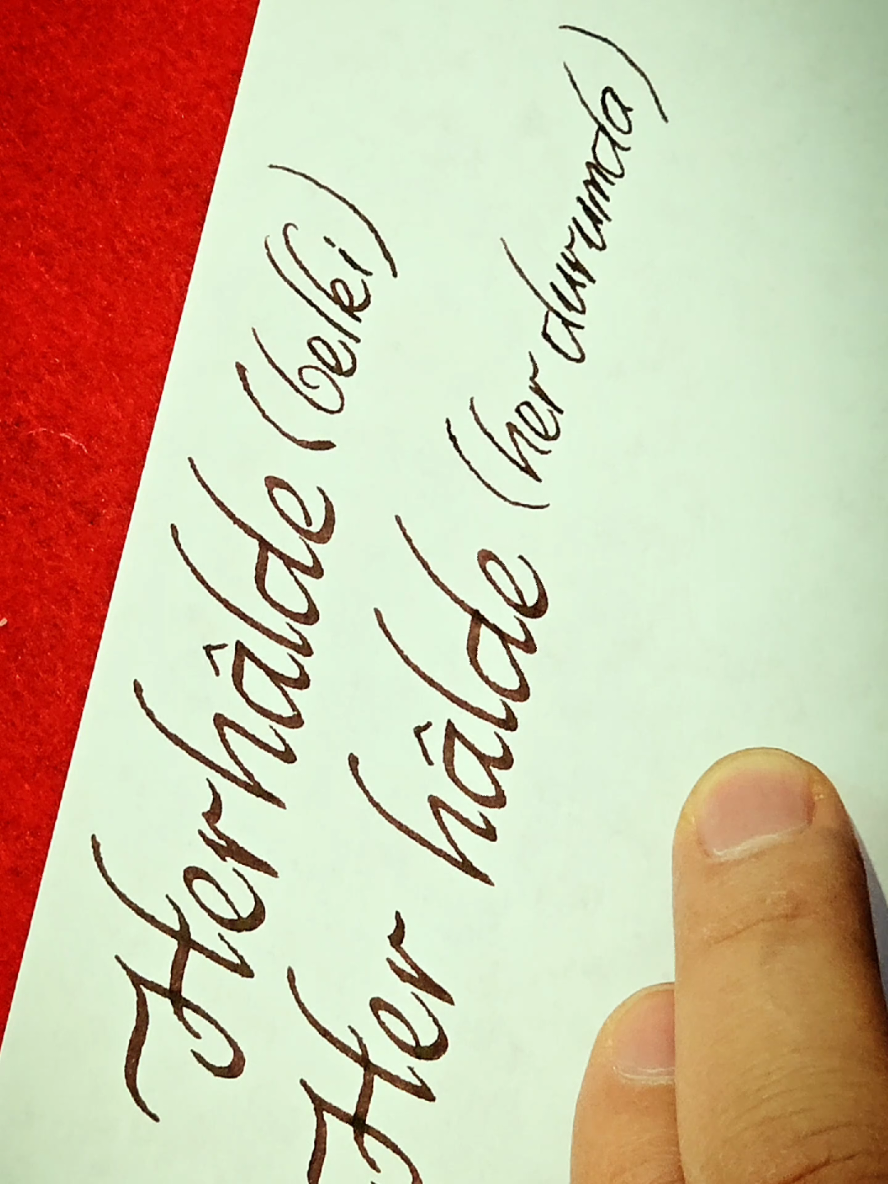 Herhâlde (belki)
Her hâlde (her durumda)